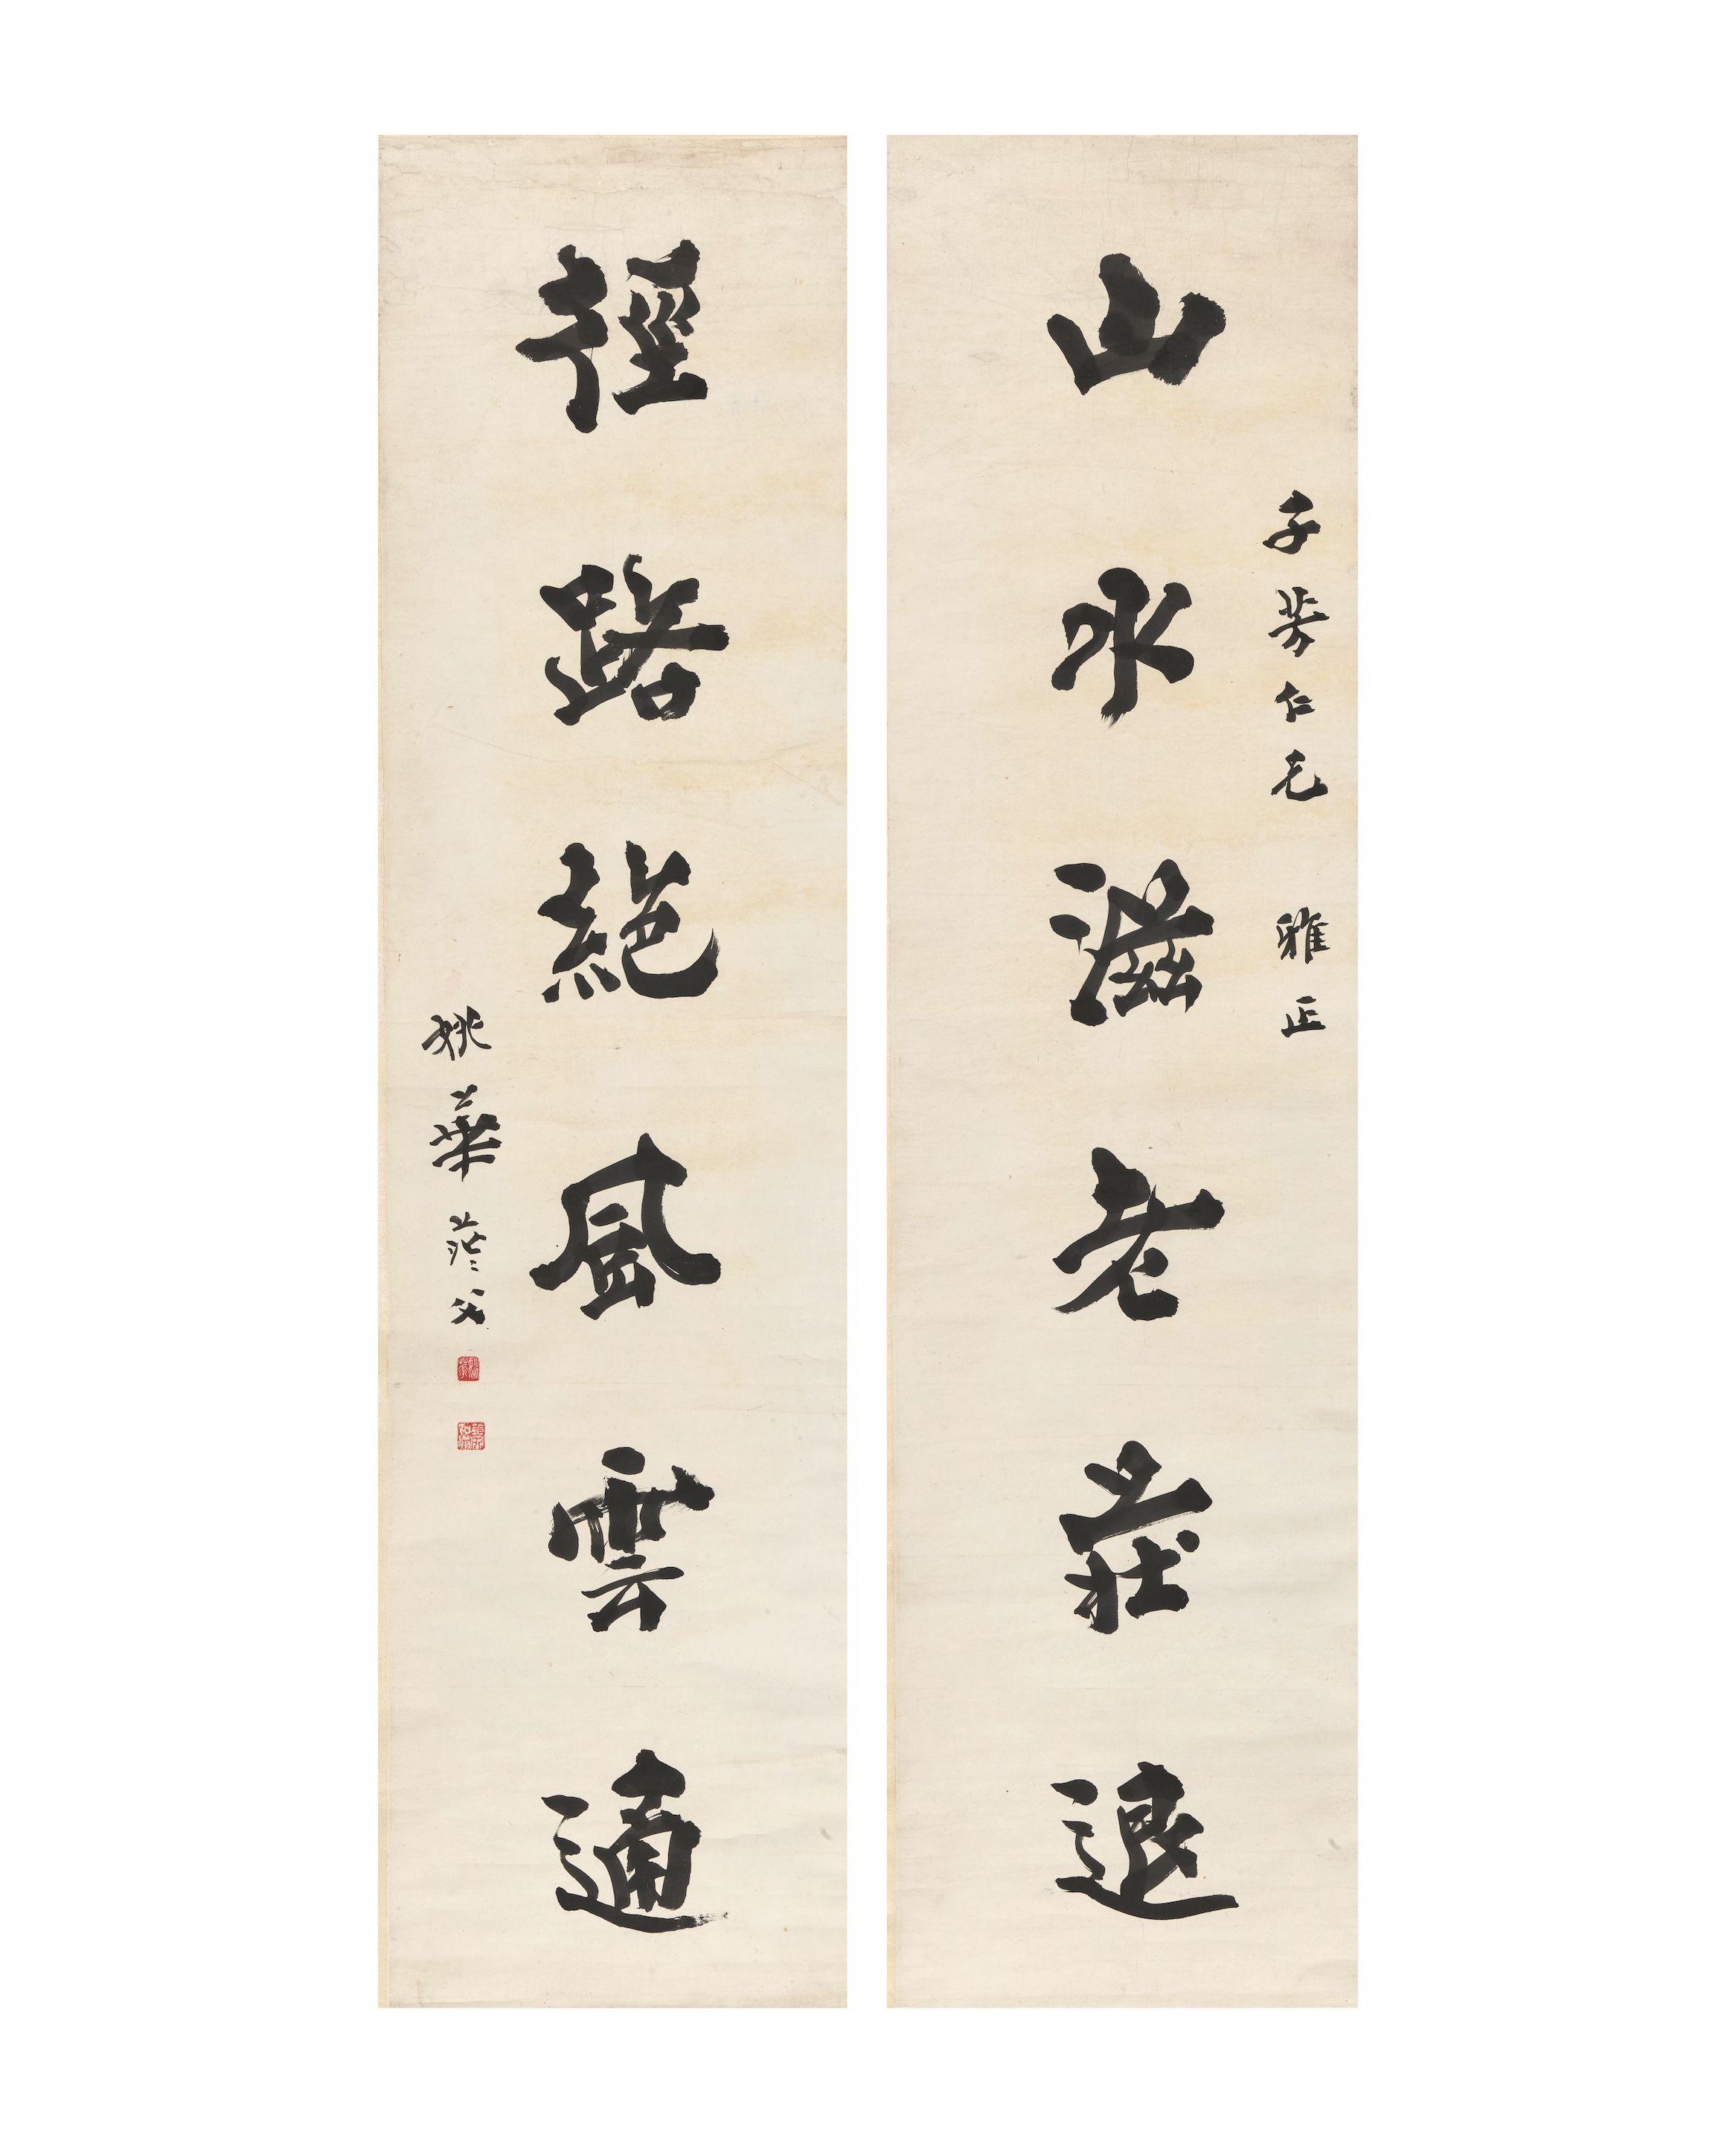 子芳仁兄 雅正
山水滋老莊退
徑路絕風雲通
姚華茫父